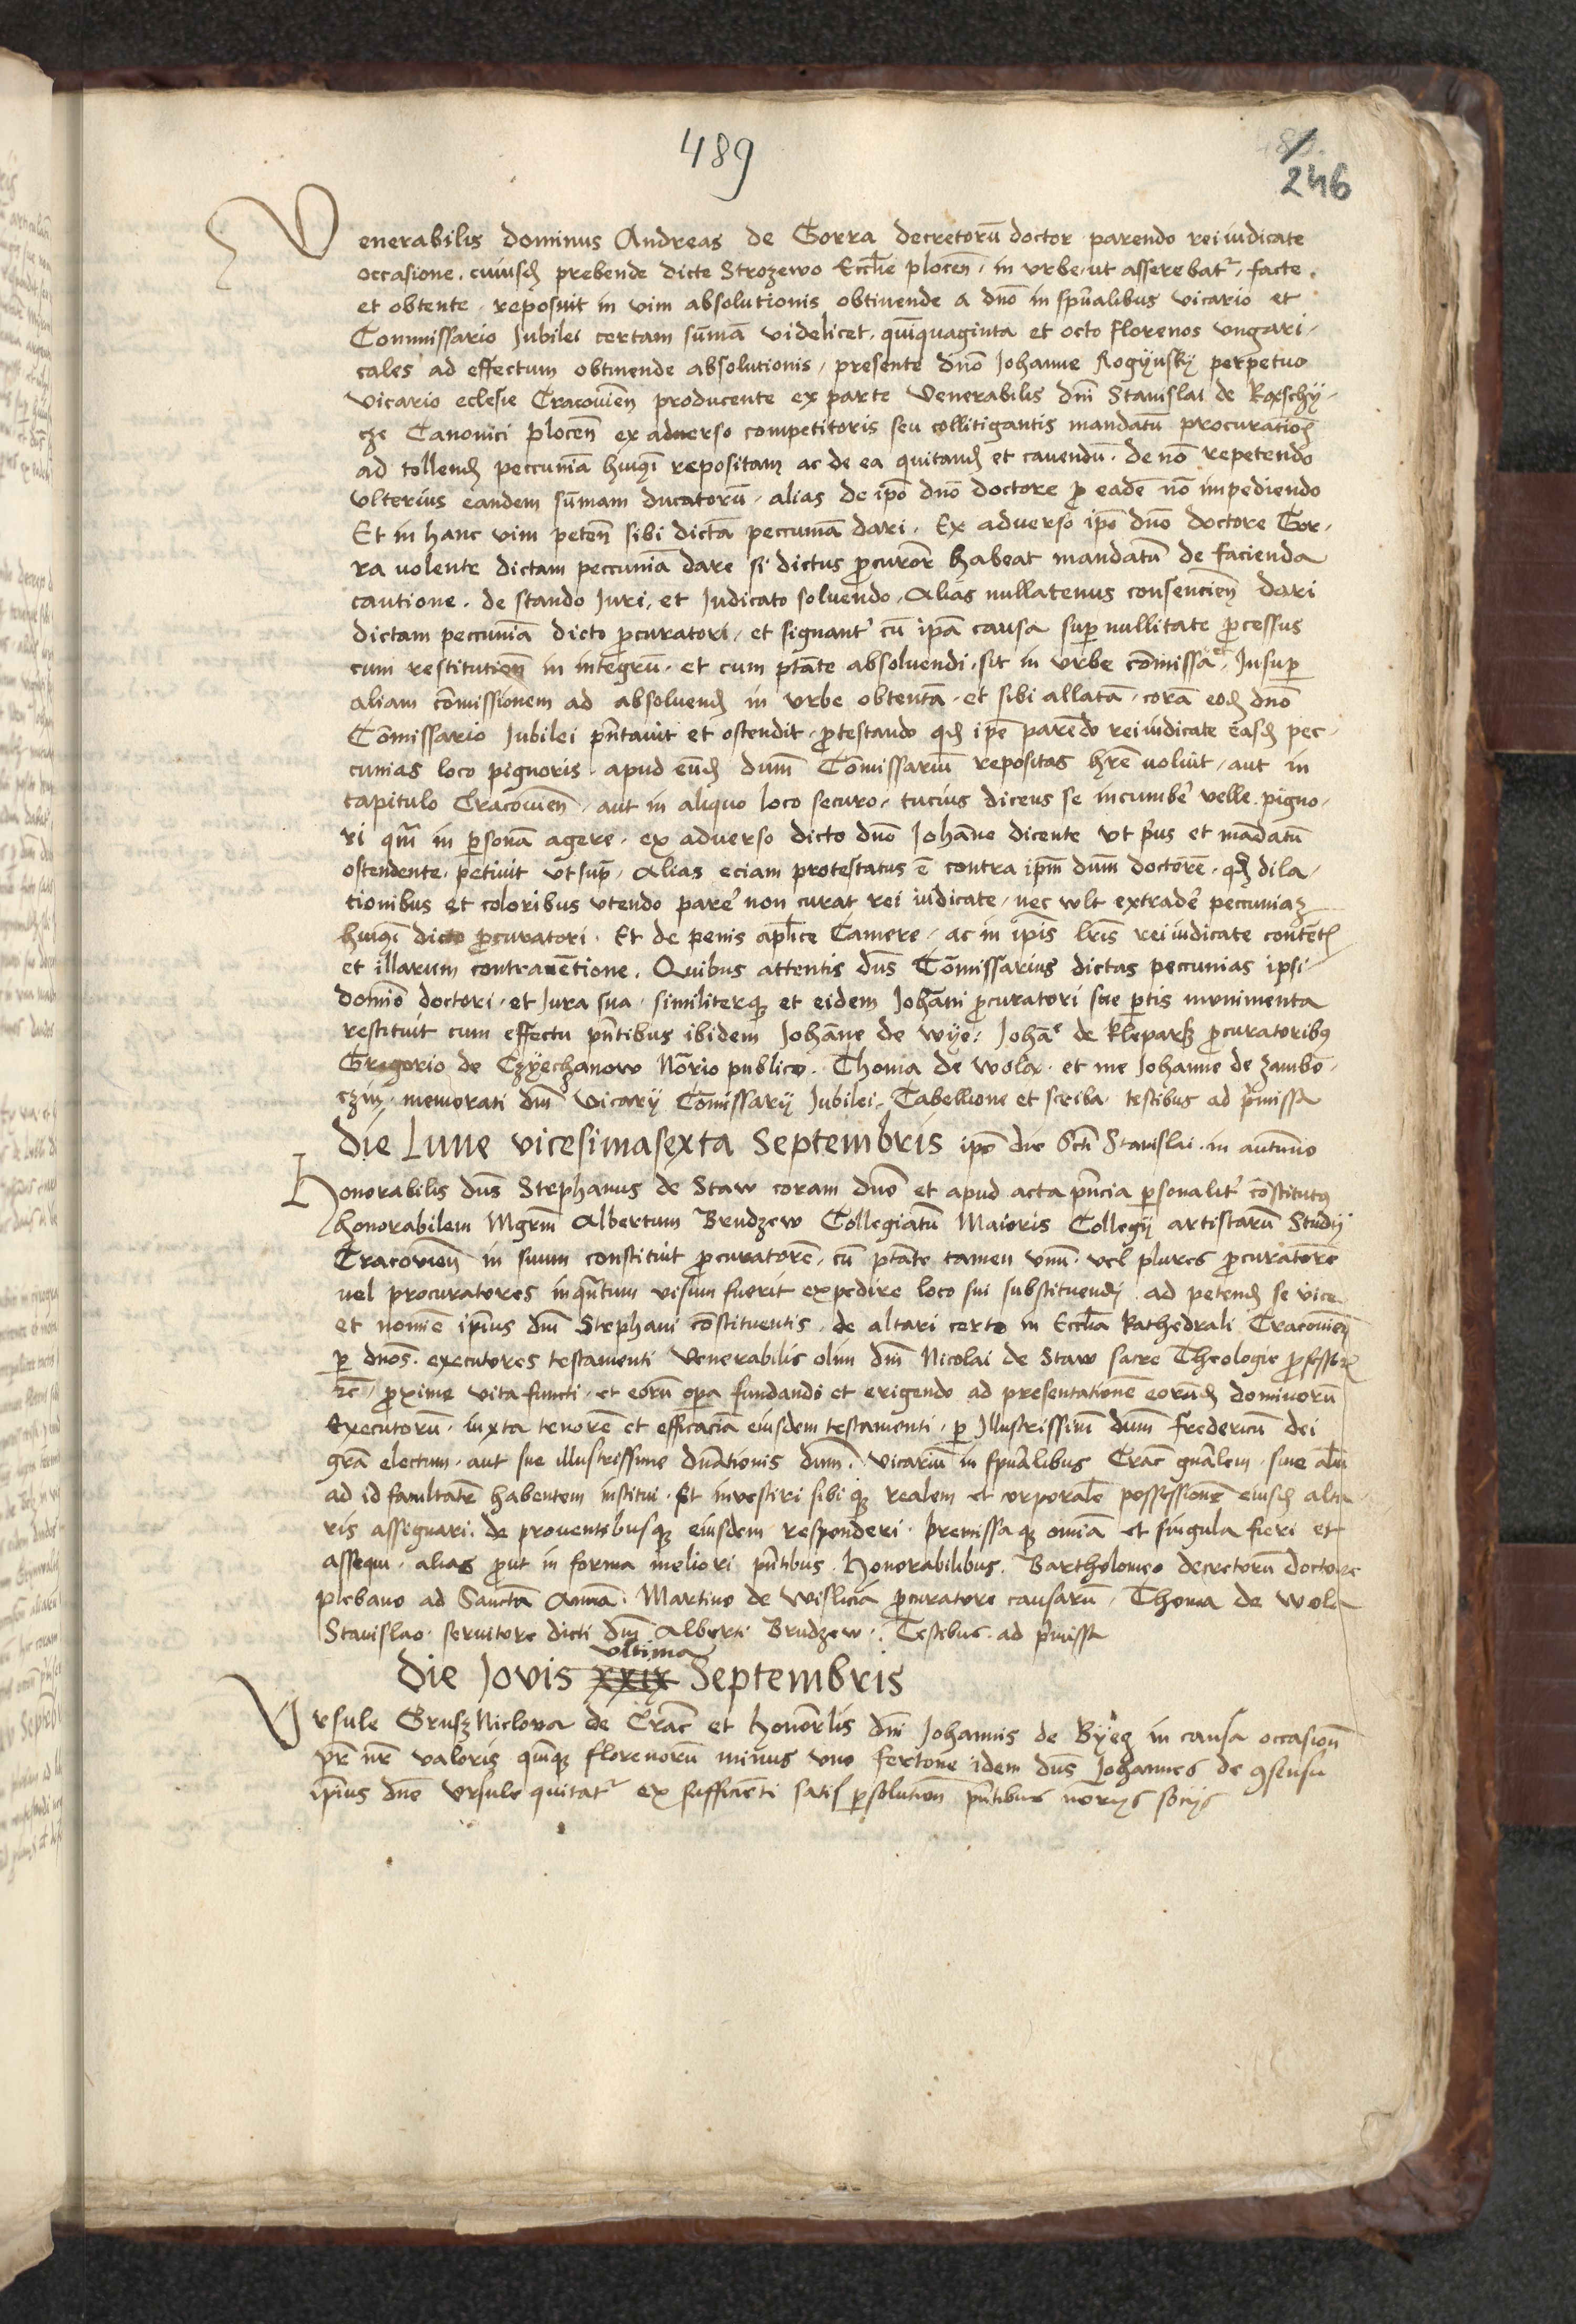 489
246
Venerabilis dominus Andreas de Gorra decretorū doctor parendo rei iudicate
occasione cuiusdꝫ prebende dicte Strozewo Eccl̄ie plocen̄ in vrbe ut asserebatr facte
et obtente reposuit in vim absolutionis obtinende a dn̄o in spūalibus vicario et
Commissario Jubilei certam sūmā videlicet quīnquaginta et octo florenos vngari
cales ad effectum obtinende absolutionis presente dn̄o Johanne Rogÿnskÿ perpetuo
vicario eclesie Cracouien̄ producente ex parte Venerabilis dn̄i Stanislai de
Canonici plocen̄ ex aduerso competitoris seu collitigantis mandatū
ad tollendꝫ peccuniā huiꝰi repositam ac de ea quitandꝫ et cauendū de nō repetendo
vlterius eandem sūmam ducatorū alias de ip̄o dn̄o doctore ꝓ eadē nō impediendo
Et in hanc vim peten̄ sibi dictā peccuniā dari Ex aduerso ip̄o dn̄o doctore Gor
ra uolente dictam peccuniā dare si dictus ꝓcuror̄ habeat mandatū de facienda
cautione de stando Juri et Judicato soluendo Alias nullatenus consencien̄ dari
dictam peccuniā dicto ꝓcuratori et signant' cū ip̄a causa suꝑ nullitate ꝓcessus
cum restitution̄ in integrū et cum ptāte absoluendi sit in vrbe cōmissa et Insuꝑ
aliam cōmissionem ad absoluendꝫ in vrbe obtentā et sibi allatā corā eodꝫ dn̄o
Cōmissario Jubilei pn̄tauit et ostendit ꝓtestando qdꝫ ipē parēdo rei iudicate easdꝫ pec
cunias loco pignoris apud eūdꝫ dn̄m Cōmissariū repositas hr̄e uoluit aut in
capitulo Cracouien̄ aut in aliquo loco securo tucius dicens se incumbe' velle pigno
ri qm̄ in ꝑsonā agere ex aduerso dicto dn̄o Johāne dicente vt pr'us et mādatū
ostendente petiuit vt supͣ Alias eciam protestatus ē contra ip̄m dn̄m doctorē qdꝫ dila
tionibus et coloribus vtendo pare' non curat rei iudicate nec wlt extrade' peccunias
huiꝰi dicto ꝓcuratori Et de penis apl̄ice Camere ac in ip̄is lr̄is rei iudicate contēt
et illarum contrauētione Quibus attentis dn̄s Cōmissarius dictas peccunias ipsi
domīo doctori et Jura sua similiterqꝫ et eidem Johāni ꝓcuratori sue ꝑtis munimenta
restituit cum effectu pn̄tibus ibidem Johāne de Wÿe Johāe de kleparz ꝓcuratoribꝰ
Gregorio de Czÿechanow Nōrio publico Thoma de Wola et me Johanne de Zambo
czin memorati dn̄i vicarÿ Cōmissarÿ Jubilei Tabellione et scriba testibus ad p'missa
Die Lune vicesimasexta Septembris ipō die Sctī Stanislai in autumno
Honorabilis dn̄s Stephanus de Staw coram dn̄o et apud acta pn̄cia ꝑsonalit' cōstitutꝰ
honorabilem Mgrm̄ Albertum Brudzew Collegiatū Maioris Collegÿ artistarū Studÿ
Cracouien̄ in suum constituit ꝓcuratorē cū ptāte tamen vnū vel plures ꝓcuratorē
uel procuratores inqͣntum visum fuerit expedire loco sui substituendi ad petendꝫ se vice
et nomīe ip̄ius dn̄i Stephani cōstituentis de altari certo in Eccl̄ia kathedrali Cracouien̄
ꝑ dn̄os executores testamenti Venerabilis olim dn̄i Nicolai de Staw sacre Theologie ꝓfessor
ꝓxime vita functi et eorū opa fundando et erigendo ad presentationē eorūdꝫ dominorū
executorū iuxta tenorē et efficaciā eiusdem testamenti ꝑ Illustrissimū dn̄m Fredericū dei
grā electum aut sue illustrissime dn̄ationis dn̄m vicariū in spūalibus Crac̄ gn̄alem siue aliū
ad id facultatē habentem institui Et inuestiri sibi qꝫ realem et corporalē possessionē eiusdꝫ alta
ris assignari de prouentibusqꝫ eiusdem responderi premissa qꝫ omīa et singula fieri et
assequi alias ꝓut in forma meliori pn̄tibus Honorabilibus Bartholomeo decretorū doctore
plebano ad Sanctā Annā Martino de Wislicia ꝓcuratore causarū Thoma de Wola
Stanislao seruitore dicti dn̄i Alberti Brudzew Testibus ad p'missa
ultima
Die Jovis xxix Septembris
Vrsule Grusz Niclowa de Crac̄ et honorl̄is dn̄i Johannis de Bÿeg in causa occasion̄
valoris quīqꝫ florenorū minus vno fertone idem dn̄s Johannes de ꝯsensu
ip̄ius dn̄e Vrsule quitatr ex sufficienti satis ꝑsolution̄ pn̄tibus